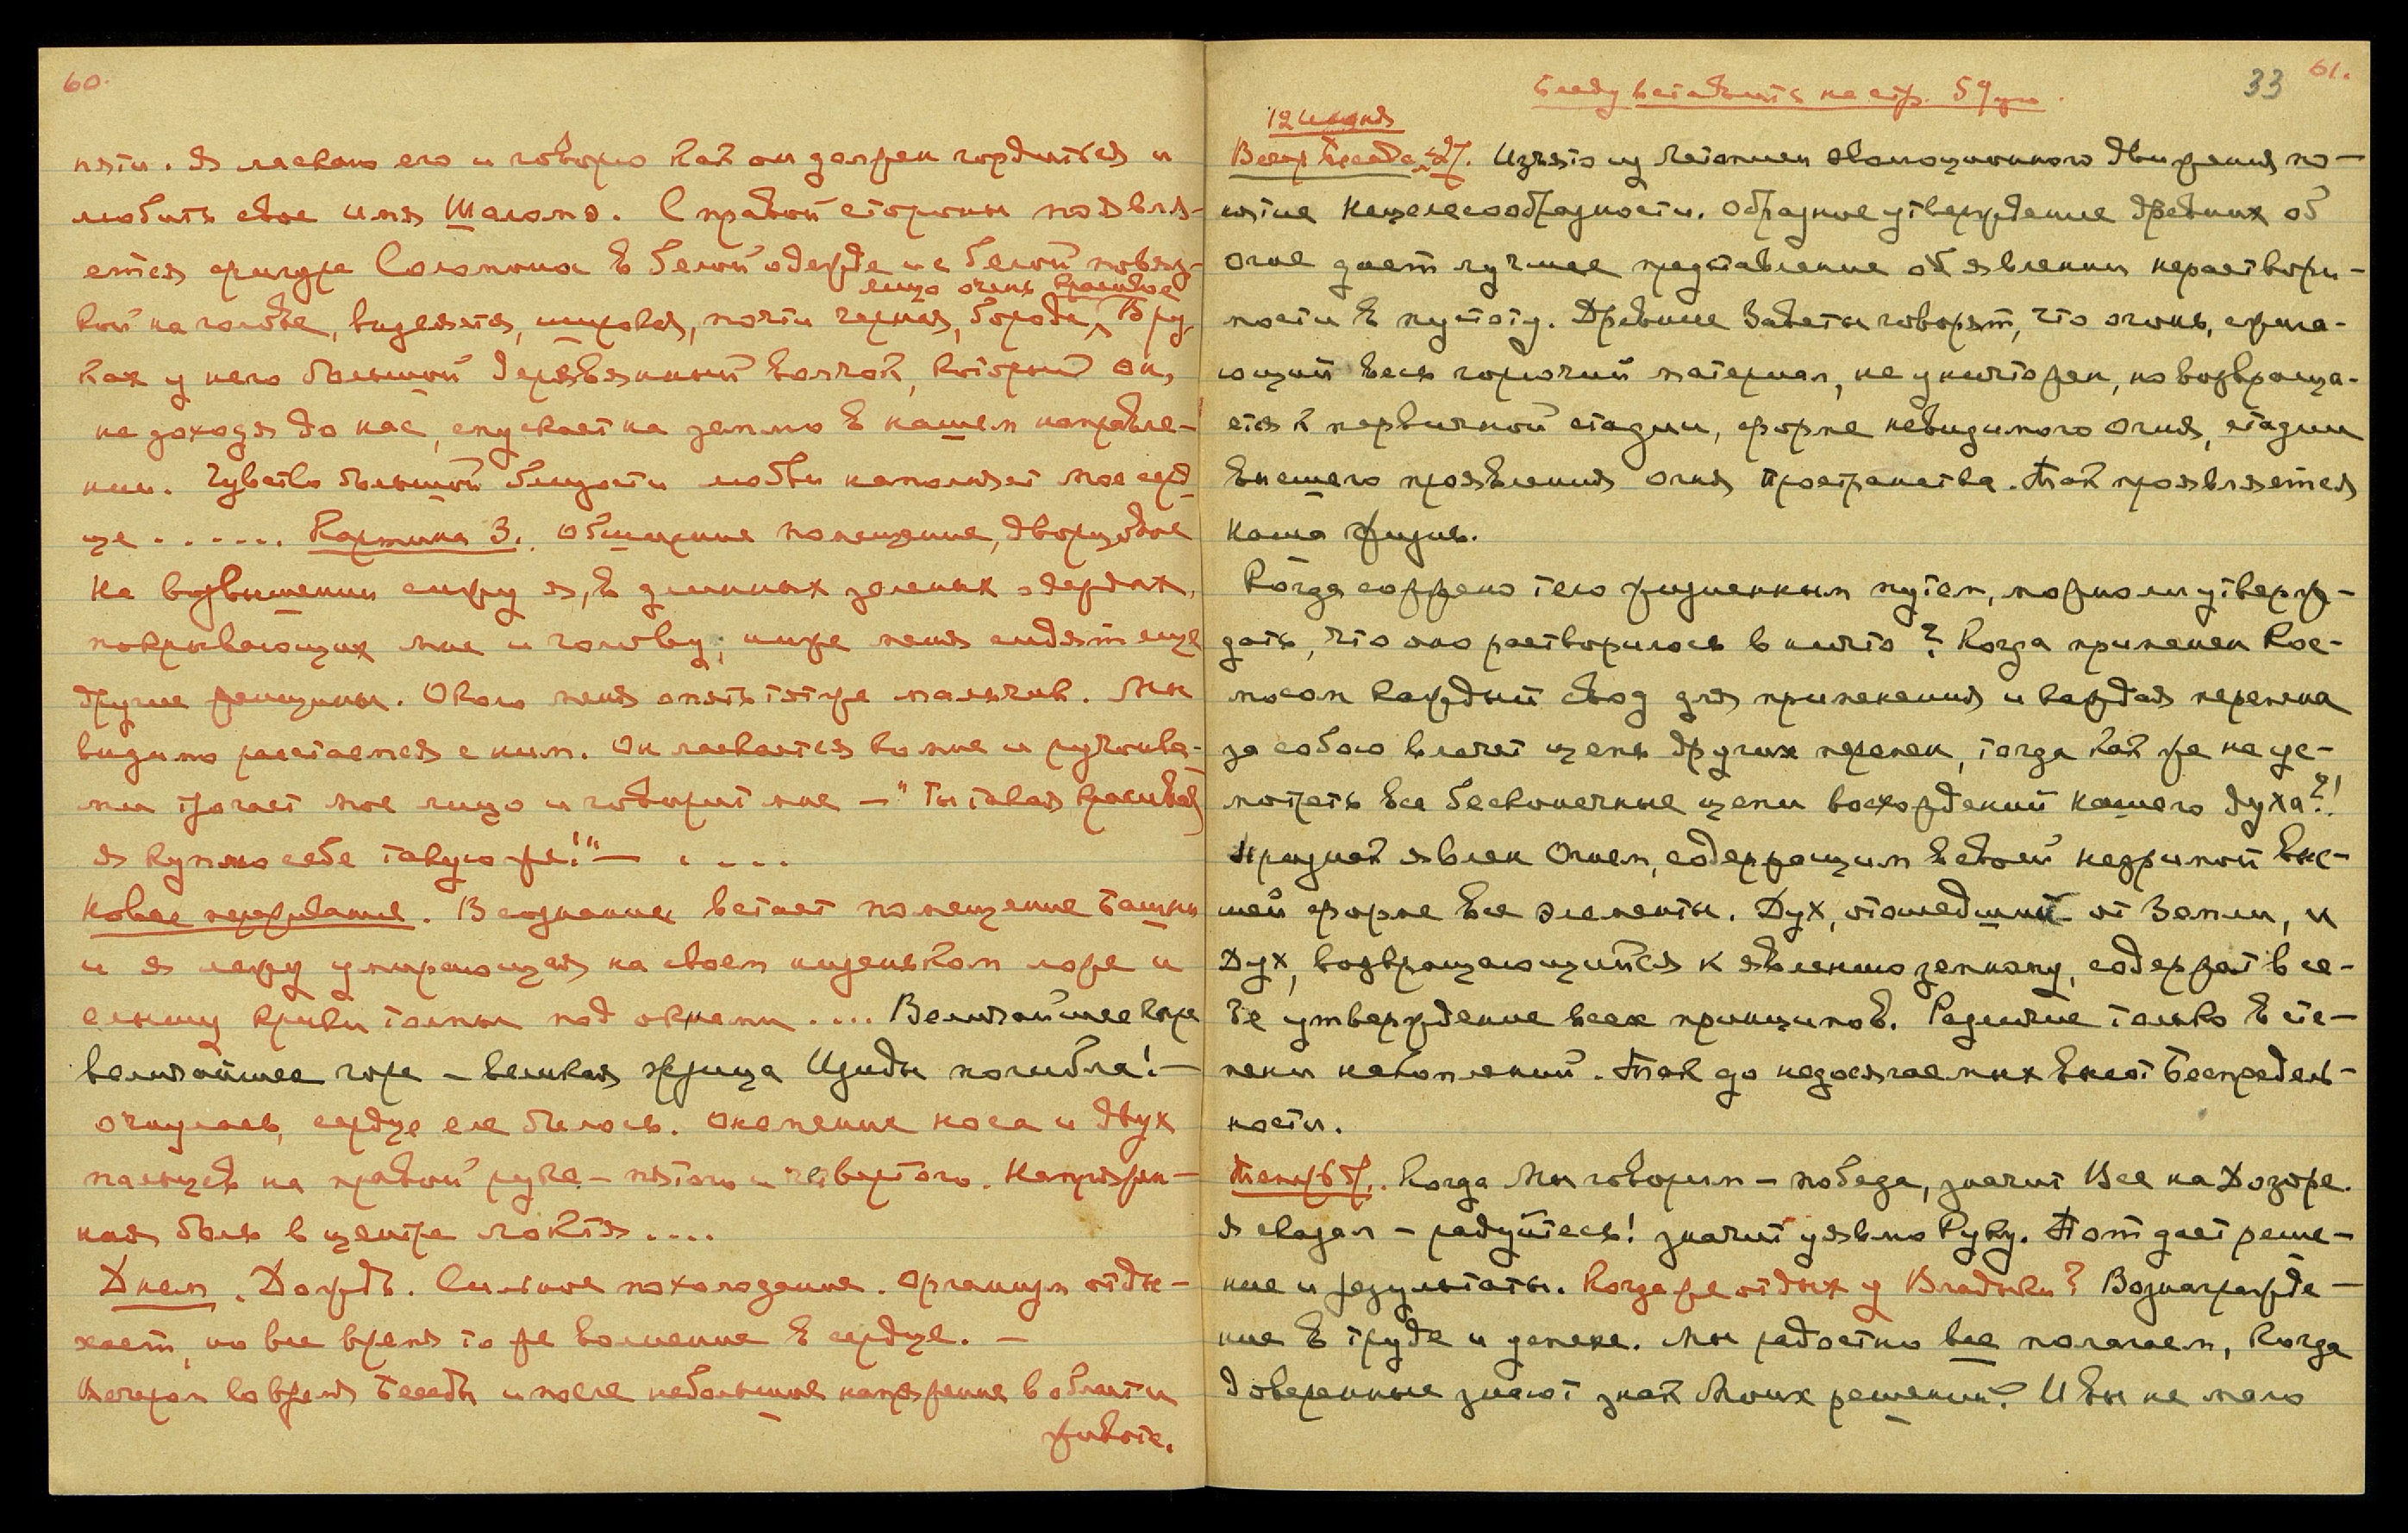 60.
няти. Я ласкаю его и говорю как он должен гордиться и
любить свое имя Шаломо. С правой стороны появля-
ется фигура Соломона в белой одежде и с белой повяз-
лицо очень красивое
кой на голове, виднеется, широкая, почти черная, борода, В ру,
ках у него большой деревянный волчок, который он,
не доходя до нас, спускает на землю в нашем направле-
нии. Чувство большой близости любви наполняет мое серд
це ...... Картина 3. Обширное помещение, дворцовое
На возвышении сижу я, в длинных зеленых одеждах,
покрывающих мне и голову; ниже меня сидят еще
другие женщины. Около меня опять тот же мальчик. Мы
видимо расстаемся с ним. Он ласкается ко мне и ручонка-
ми трогает мое лицо и говорит мне —"Ты такая красивая
я куплю себе такую же!"— . . . .
Новое переживание. В сознании встает помещение Башни
и я лежу умирающая на своем низеньком ложе и
слышу крики толпы под окнами .... Величайшее горе
величайшее горе – великая жрица Изиды погибла!—
очнулась, сердце еле билось. Онемение носа и двух
пальцев на правой руке – пятого и четвертого. Напряжен-
ная боль в центре локтя ....
Днем. Дождь. Сильное похолодание. Организм отды-
хает, но все время то же волнение в сердце. —
Вечером во время Беседы и после небольшое напряжение в области
животе.
33 61.
Беседу вставить на стр. 59ую.
12 Июня
Вечер Беседа. Изъято из летописи эволюционного движения по-
нятие нецелесообразности. Образное утверждение древних об
огне дает лучшее представление об явлении нераствори-
мости в пустоту. Древние Заветы говорят, что огонь, сжига-
ющий весь горючий материал, не уничтожен, но возвраща-
ется к первичной стадии, форме невидимого огня, стадии
высшего проявления огня Пространства. Так проявляется
наша жизнь.
Когда сожжено тело жизненным путем, можно ли утверж-
дать, что оно растворилось в ничто? Когда применен Кос-
мосом каждый свод для применения и каждая перемена
за собою влечет цепь других перемен, тогда как же не ус-
мотреть все бесконечные цепи восхождений нашего духа?!
Признак явлен Огнем, содержащим в своей незримой выс-
шей форме все элементы. Дух, отошедший от Земли, и
Дух, возвращающийся к явлению земному, содержат в се-
бе утверждение всех принципов. Различие только в сте-
пени накоплений. Так до недосягаемых высот Беспредель-
ности.
Когда Мы говорим – победа, значит Все на Дозоре.
Я сказал – радуйтесь! значит уявлю Руку. Пот дает реше-
ние и результаты. Когда же отдых у Владыки? Вознагражде-
ние в труде и успехе. Мы радостно все полагаем, когда
доверенные знают знак Моих решений. И вы не мало